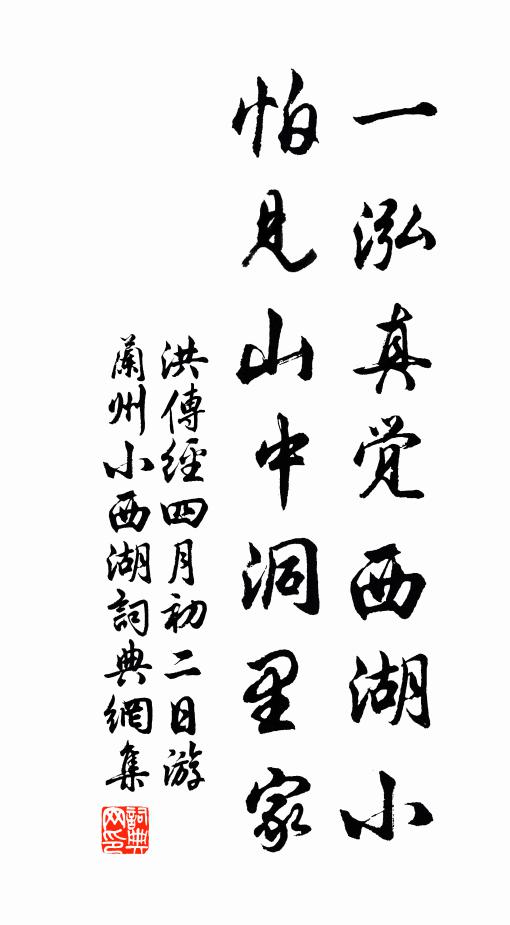 一泓真觉西湖小
怕見山中洞里家
洪傳經四月初二日游
蘭州小西湖詞典網集
詞典
网印